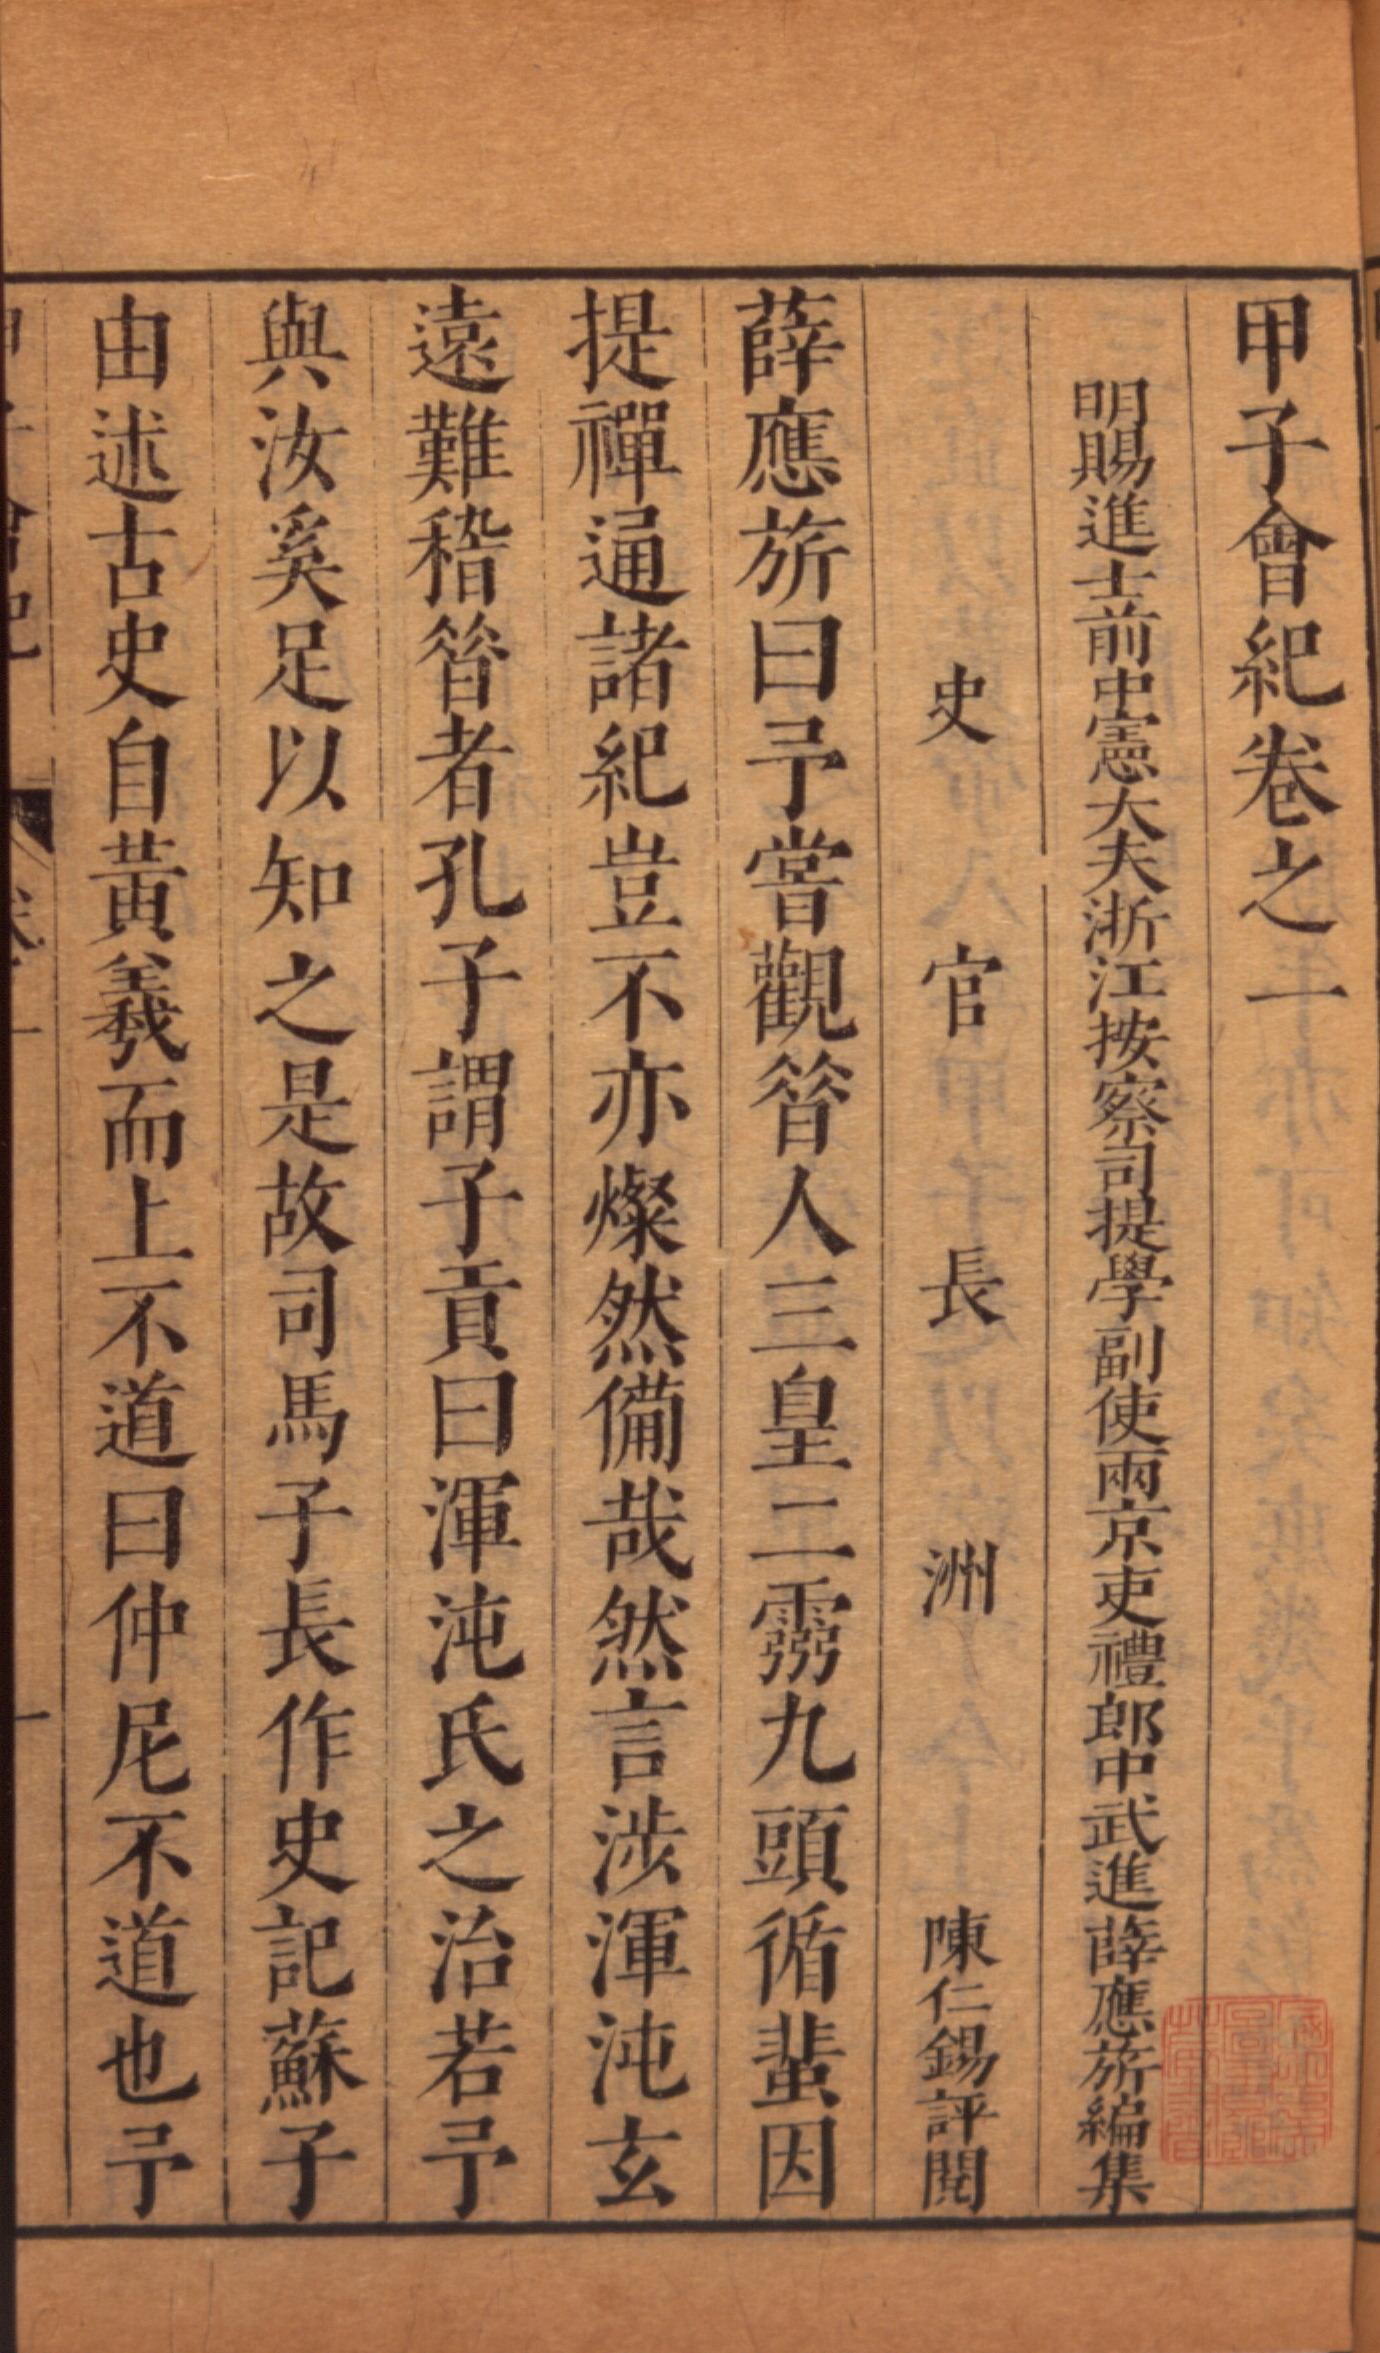 甲子會紀卷之一
明賜進士前中憲大夫浙江按察司提學副使兩京吏禮郎中武進薛應旂編集
史官長洲陳仁錫評閱
薛應旂曰予嘗觀昝人三皇二靈九頭循蜚因
提禪通諸紀豈不亦燦然備哉然言涉渾沌玄
遠難稽昝者孔子謂子貢曰渾沌氏之治若予
與汝奚足以知之是故司馬子長作史記蘇子
由述古史自黃羲而上不道曰仲尼不道也予